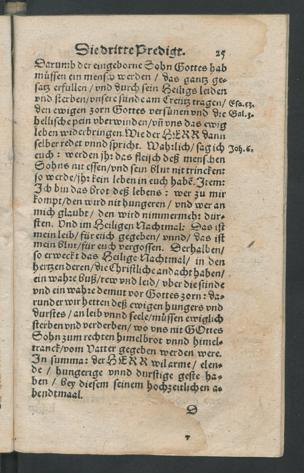 Die dritte Predigt. 25
Darumb der eingeborne Sohn Gottes hab
müssen ein mensch werden / das gantz ge-
satz erfüllen / vnd durch sein Heiligs leiden
vnd sterben / vnsere sünde am Creutz tragen / Esa. 53.
den ewigen zorn Gottes versünen vnd die Gal. 3.
hellische pein vberwinden / vñ vns das ewig
leben widerbringen. Wie der HERR dann
selber redet vnnd spricht. Warlich / sag ich Joh. 6.
euch: werden jhr das fleisch deß menschen
Sohns nit essen / vnd sein blut nit trincken:
so werde jhr kein leben in euch habē. Item:
Ich bin das brot deß lebens: wer zu mir
kompt / den wird nit hungeren / vnd wer an
mich glaubt / den wird nimmermehr dür-
sten. Vnd im Heiligen Nachtmal: Das ist
mein leib / für euch gegeben / vnnd / das ist
mein Blut / für euch vergossen. Derhalben /
so erweckt das Heilige Nachtmal / in den
hertzen deren / die Christliche andacht haben /
ein wahre buß / rew vnd leid / vber die sünde
vnd ein wahre demut vor Gottes zorn: da-
runder wir hetten deß ewigen hungers vnd
durstes / an leib vnnd seele / müssen ewiglich
sterben vnd verderben / wo vns nit GOttes
Sohn zum rechten himelbrot vnnd himel-
tranck / vom Vatter gegeben werden were.
In summa: der HERR wil arme / elen-
de / hungerige vnnd durstige geste ha-
ben / bey diesem seinem hochzeitlichen a-
bendtmaal.
D